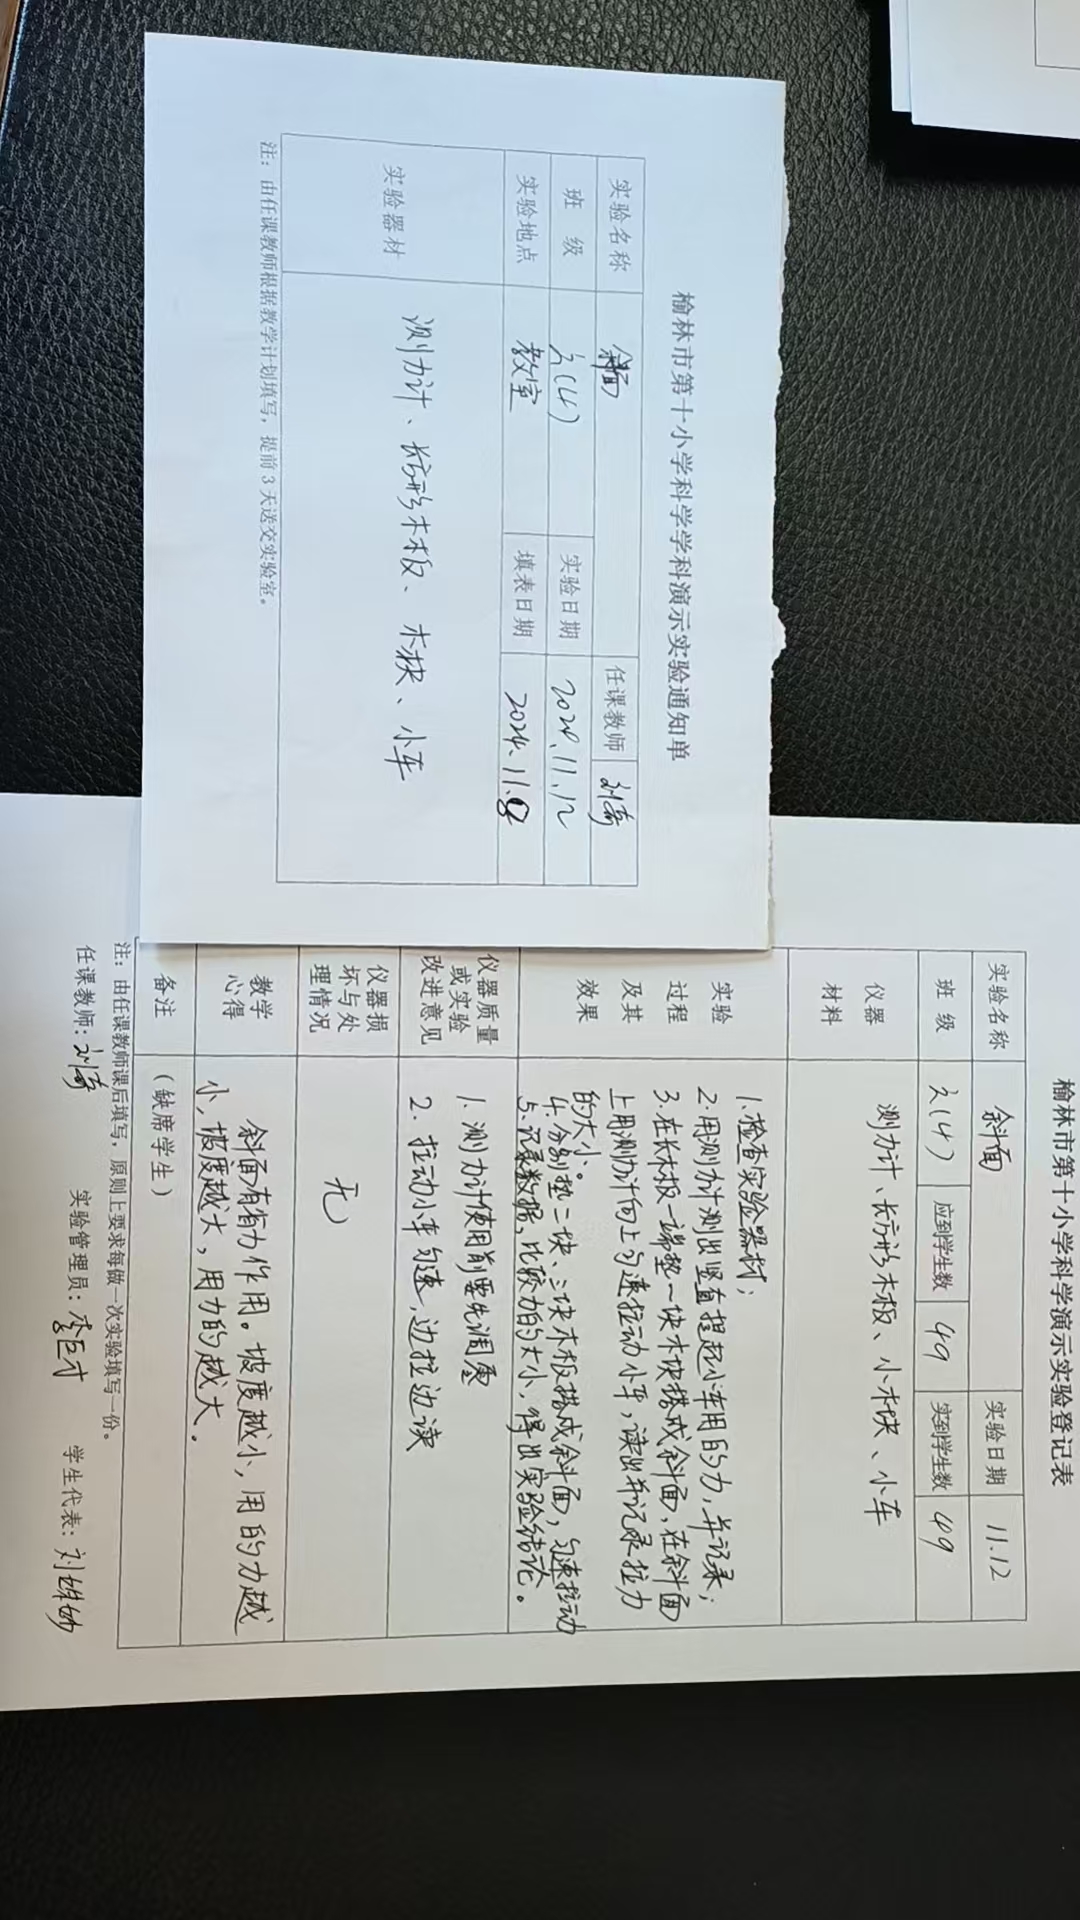 榆林市第十小学科学学科演示实验通知单
实验名称 斜面 任课教师 刘奇
班 级 六(4) 实验日期 2024.11.12
实验地点 教室 填表日期 2024.11.8
实验器材 测力计、长方形木板、木块、小车
注：由任课教师根据教学计划填写，提前 3 天送交实验室。
榆林市第十小学科学演示实验登记表
实验名称 斜面 实验日期 11.12
班 级 六(4) 应到学生数 49 实到学生数 49
仪器
材料
测力计、长方形木板、小木块、小车
实验
过程
及其
效果
1.检查实验器材；
2.用测力计测出竖直提起小车用的力，并记录；
3.在长木板一端垫一块木块搭成斜面，在斜面
上用测力计向上匀速拉动小车，读出并记录拉力
的大小。
4.分别垫二块、三块木板搭成斜面，匀速拉动
5.记录数据，比较力的大小，得出实验结论。
仪器质量
或实验
改进意见
1.测力计使用前要先调零
2.拉动小车匀速，边拉边读
仪器损
坏与处
理情况
无
教学
心得
斜面有省力作用。坡度越小，用的力越
小，坡度越大，用力的越大。
备注 （缺席学生）
注：由任课教师课后填写，原则上要求每做一次实验填写一份。
任课教师：刘奇 实验管理员：李巨才 学生代表：刘姝妙